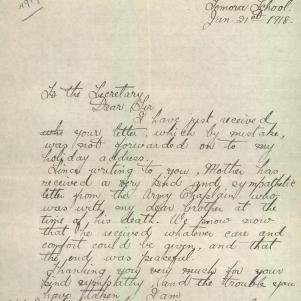 Temora School.
Jan. 21st 1918.
To the Secretary
Dear Sir
I have just received
your letter, which by mistake,
was not forwarded on to my
holiday address.
Since writing to you, Mother has
received a very kind and sympathetic
letter from the Army Chaplain who
was with my dear brother at the
time of his death. We know now
that he received whatever care and
comfort could be given, and that
the end was peaceful.
Thanking you very much for your
kind sympathy and the trouble you
have taken, I am